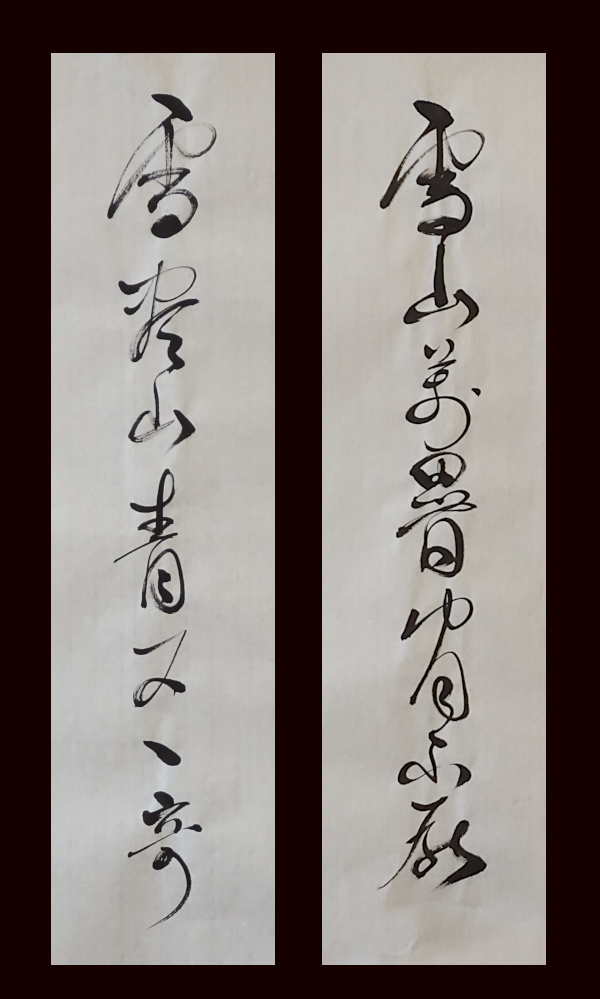 雪山萬疊看不厭
雪盡山青又一奇